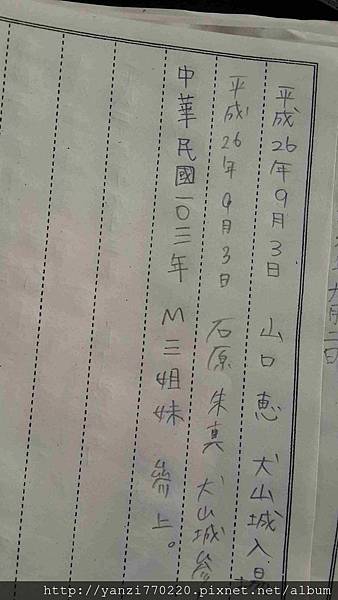 平成26年9月3日 山口 恵 犬山城入場
平成26年9月3日 石原 朱真 犬山城参
中華民國一〇三年 M三姐妹 参上。
http://yanzi770220.pixnet.net/album